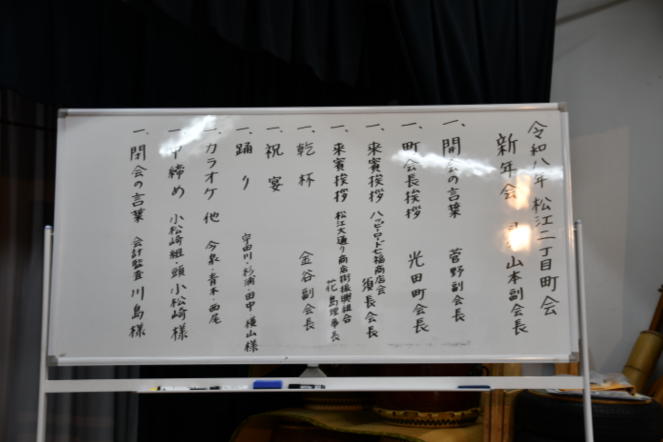 令和八年 松江二丁目町会
新年会 山本副会長
一、開会の言葉 菅野副会長
一、町会長挨拶 光田町会長
一、来賓挨拶 ハッピーロード七福商店会 須長会長
一、来賓挨拶 松江大通り商店街振興組合 花島理事長
一、乾杯 金谷副会長
一、祝宴
一、踊り 宇田川・杉浦・田中 横山様
一、カラオケ 他 今泉・青木・西尾
一、中締め 小松崎組・頭 小松崎様
一、閉会の言葉 会計監査 川島様